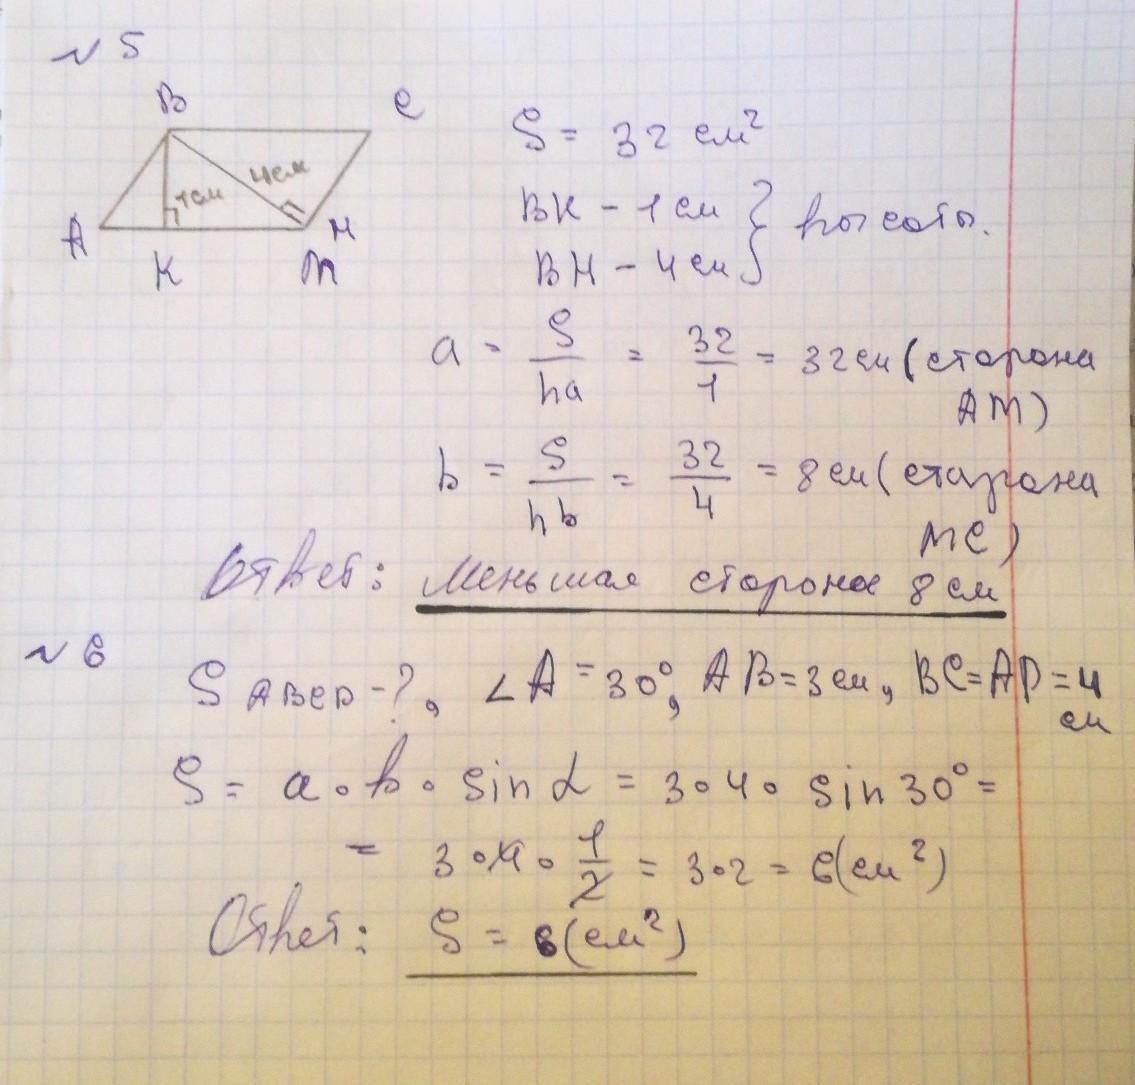 №5
B C
1см 4см
A K M H
S = 32 см²
BK - 1 см } высоты.
BH - 4 см
a = S/ha = 32/1 = 32 см (сторона
AM)
b = S/hb = 32/4 = 8 см (сторона
MC)
Ответ: Меньшая сторона 8 см
№6
S ABCD - ?, ∠A = 30°, AB = 3 см, BC = AD = 4
см
S = a · b · sin α = 3 · 4 · sin 30° =
= 3 · 4 · 1/2 = 3 · 2 = 6 (см²)
Ответ: S = 6 (см²)